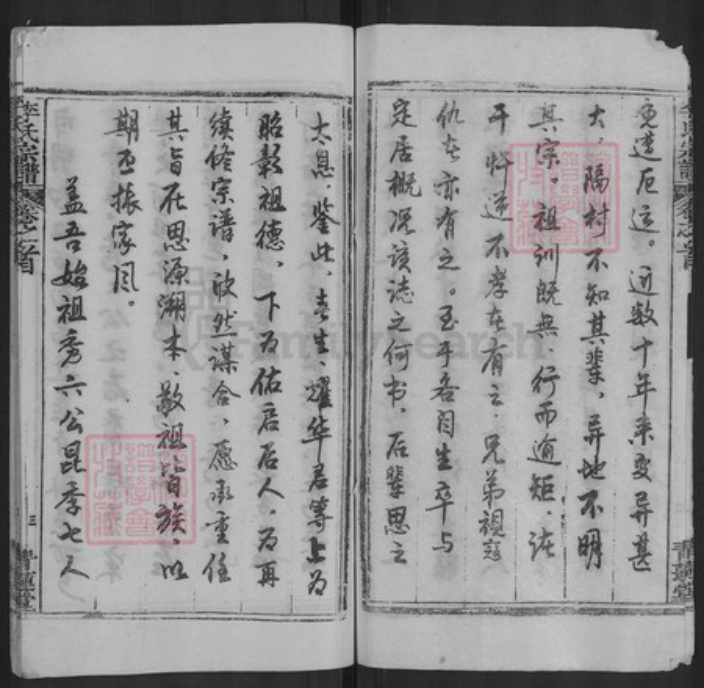 重遭厄运。近数十年来变异甚
大，隔村不知其辈，异地不明
其宗。祖训既无，行而逾矩，
干忤逆不孝在有之，兄弟视寇
仇在亦有之。至乎各自生卒与
定居概况该志之何书，后辈思之
太息，鉴此，吉生、耀华君等上为
昭彰祖德，下为佑启后人，为再
续修宗谱，欣然谋合，愿承重任
其旨在思源溯本，敬祖睦族，以
期丕振家风。
盖吾始祖秀六公昆季七人
李氏宗譜
卷之首
三
青蓮堂